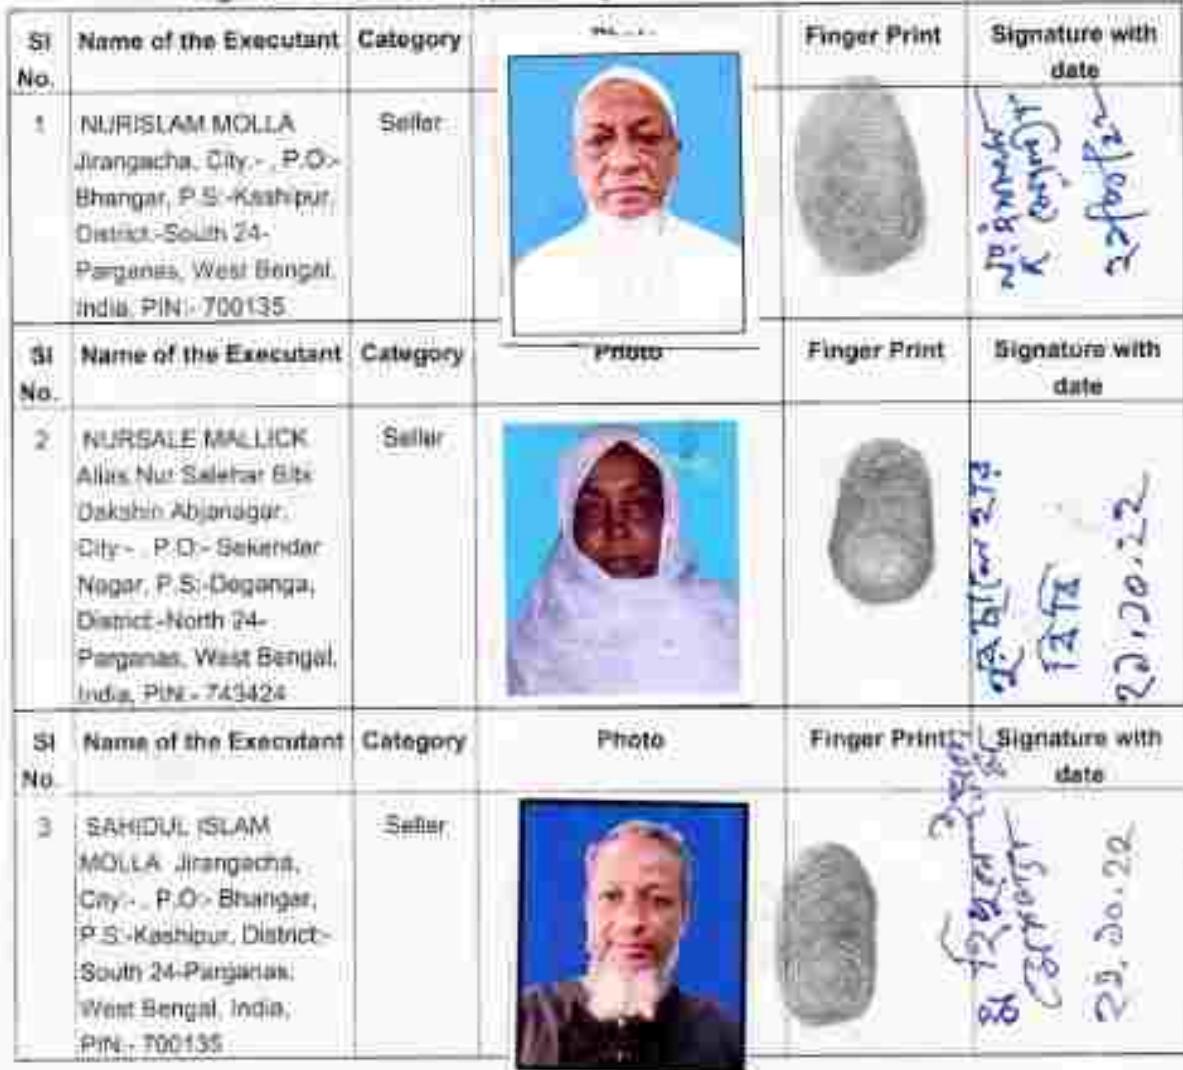 SI No. Name of the Executant Category Finger Print Signature with date
1 NURISLAM MOLLA Seller
Jirangacha, City:- , P.O:-
Bhangar, P.S:-Kashipur,
District:-South 24-
Parganas, West Bengal,
India, PIN:- 700135
SI No. Name of the Executant Category Photo Finger Print Signature with date
2 NURSALE MALLICK Seller
Alias Nur Salehar Bibi
Dakshin Abjanagar,
City:- , P.O:- Sekendar
Nagar, P.S:-Deganga,
District:-North 24-
Parganas, West Bengal,
India, PIN:- 743424
২১.১০.২২
SI No. Name of the Executant Category Photo Finger Print Signature with date
3 SAHIDUL ISLAM Seller
MOLLA Jirangacha,
City:- , P.O:- Bhangar,
P.S:-Kashipur, District:-
South 24-Parganas,
West Bengal, India,
PIN:- 700135
২১.১০.২২